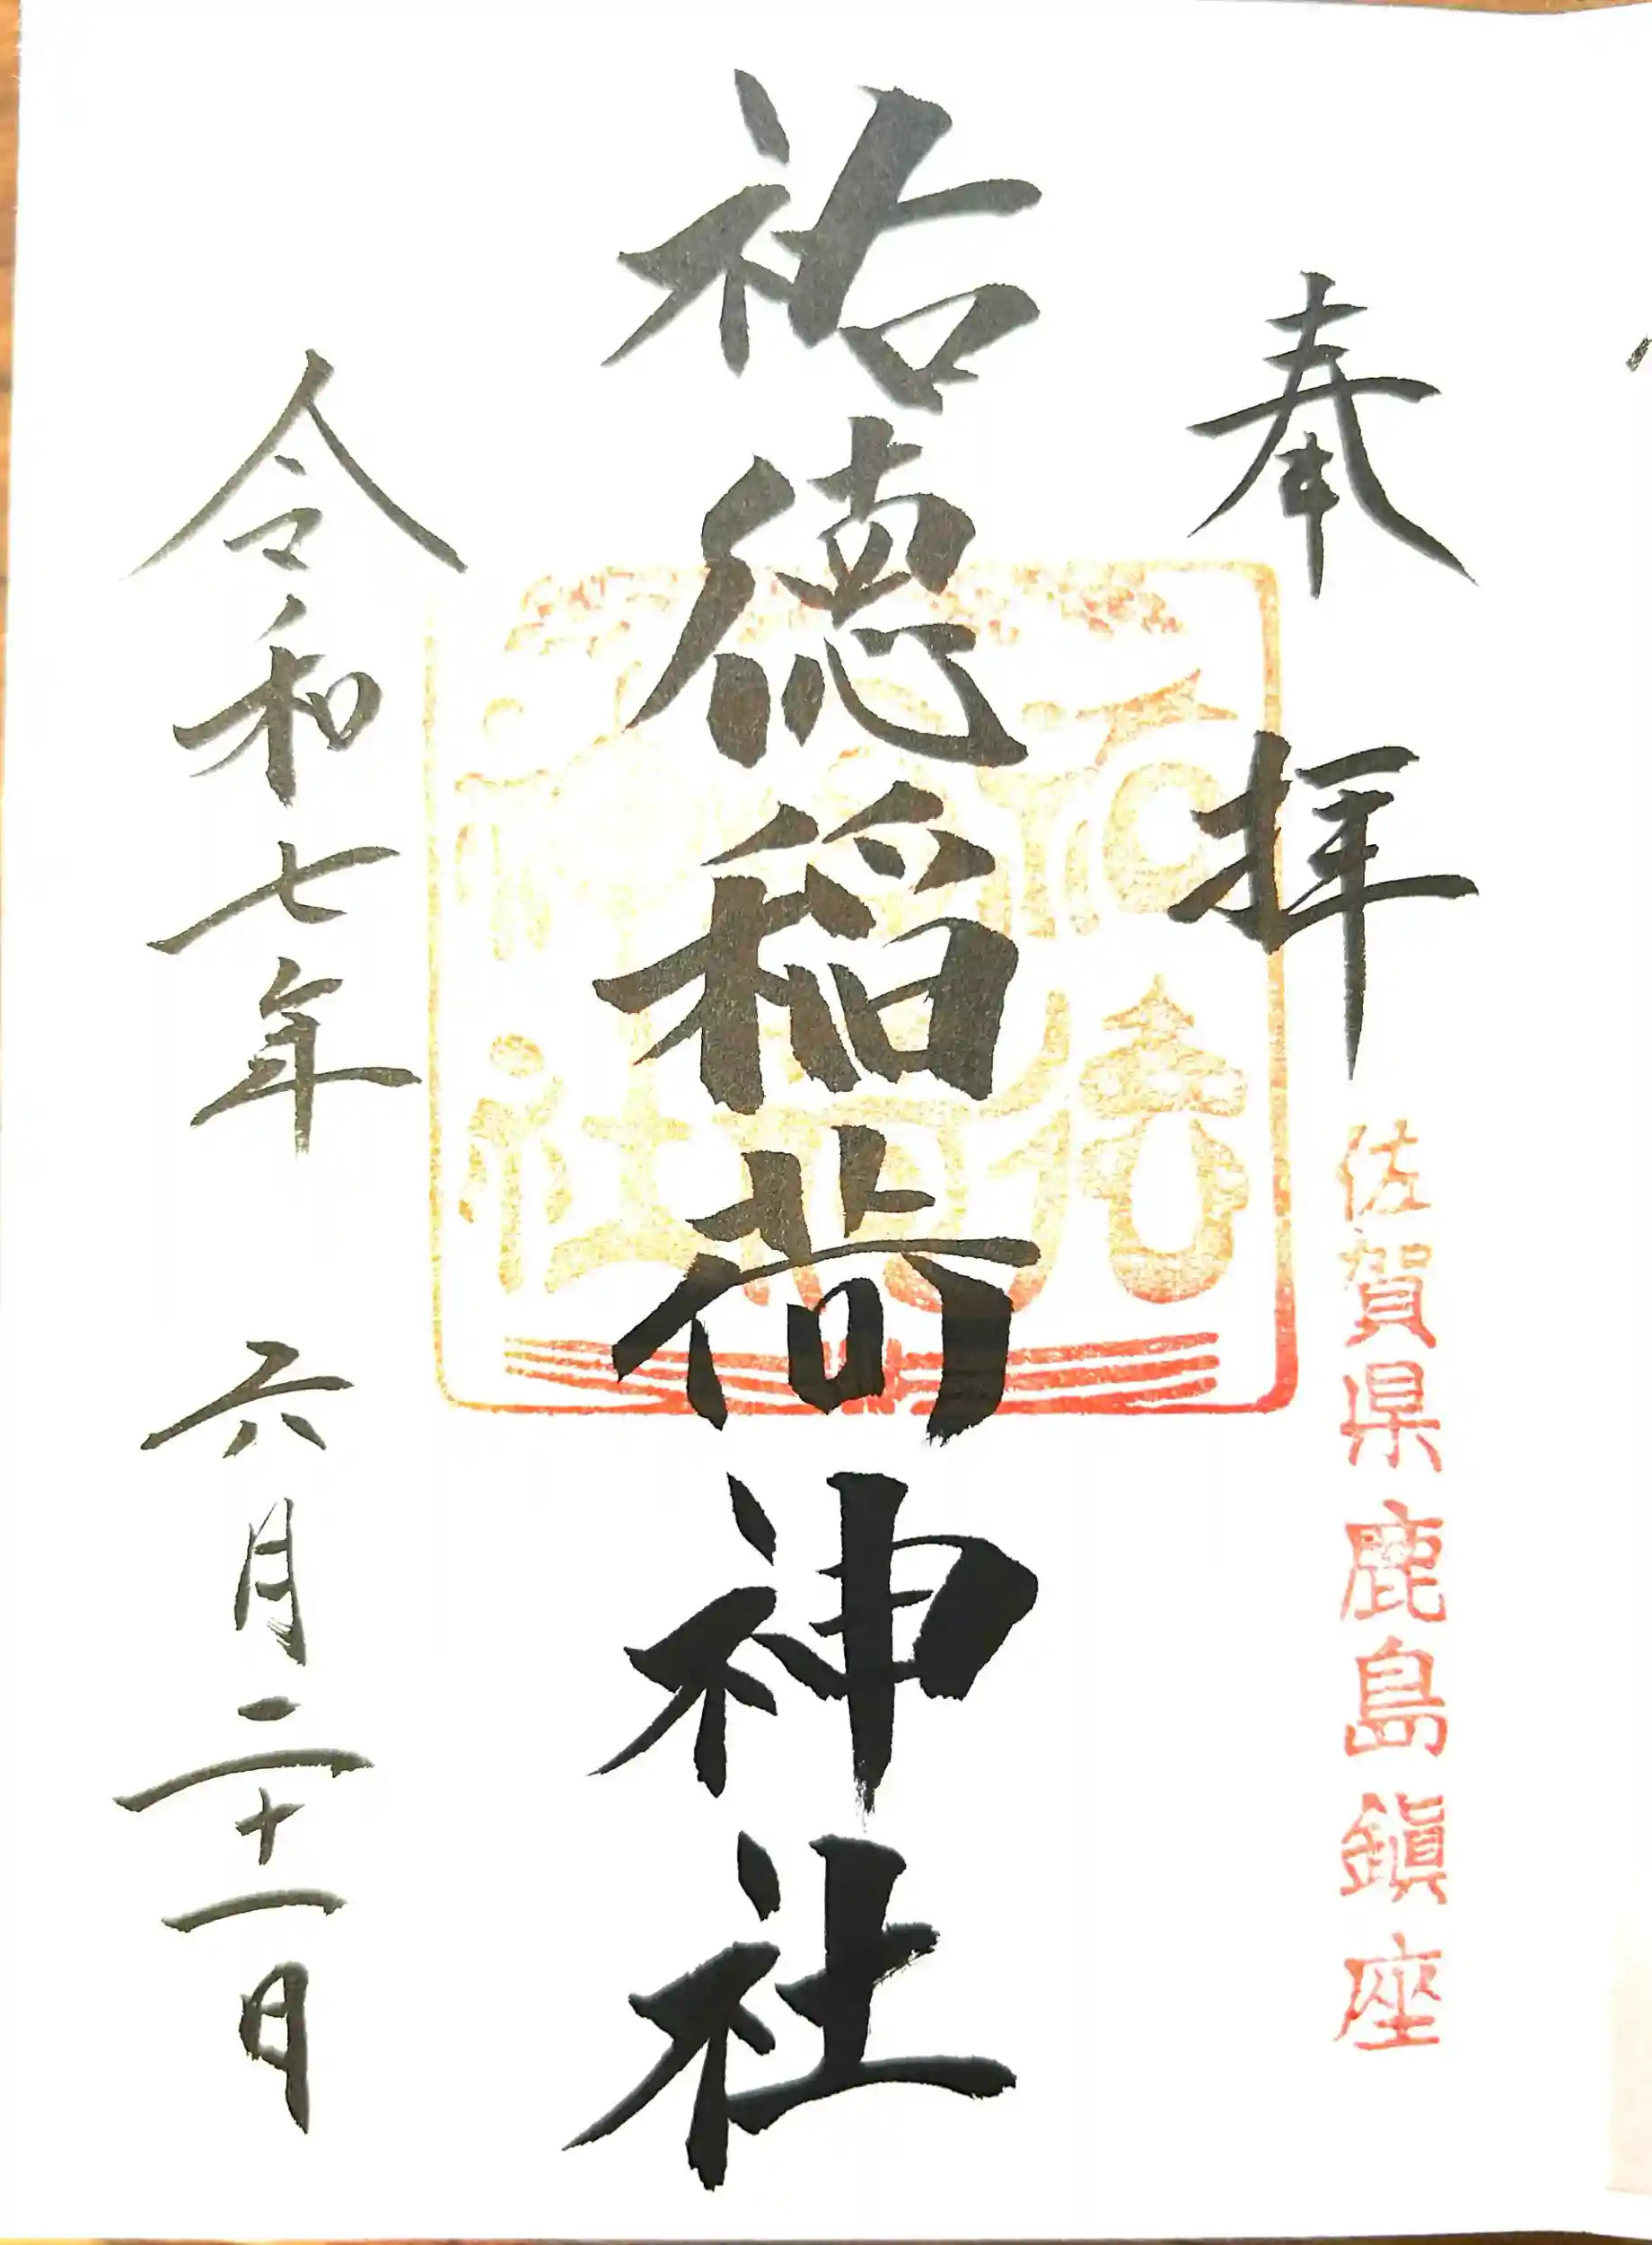 奉拝
佐賀県鹿島鎮座
祐徳稲荷神社
令和七年 六月二十一日